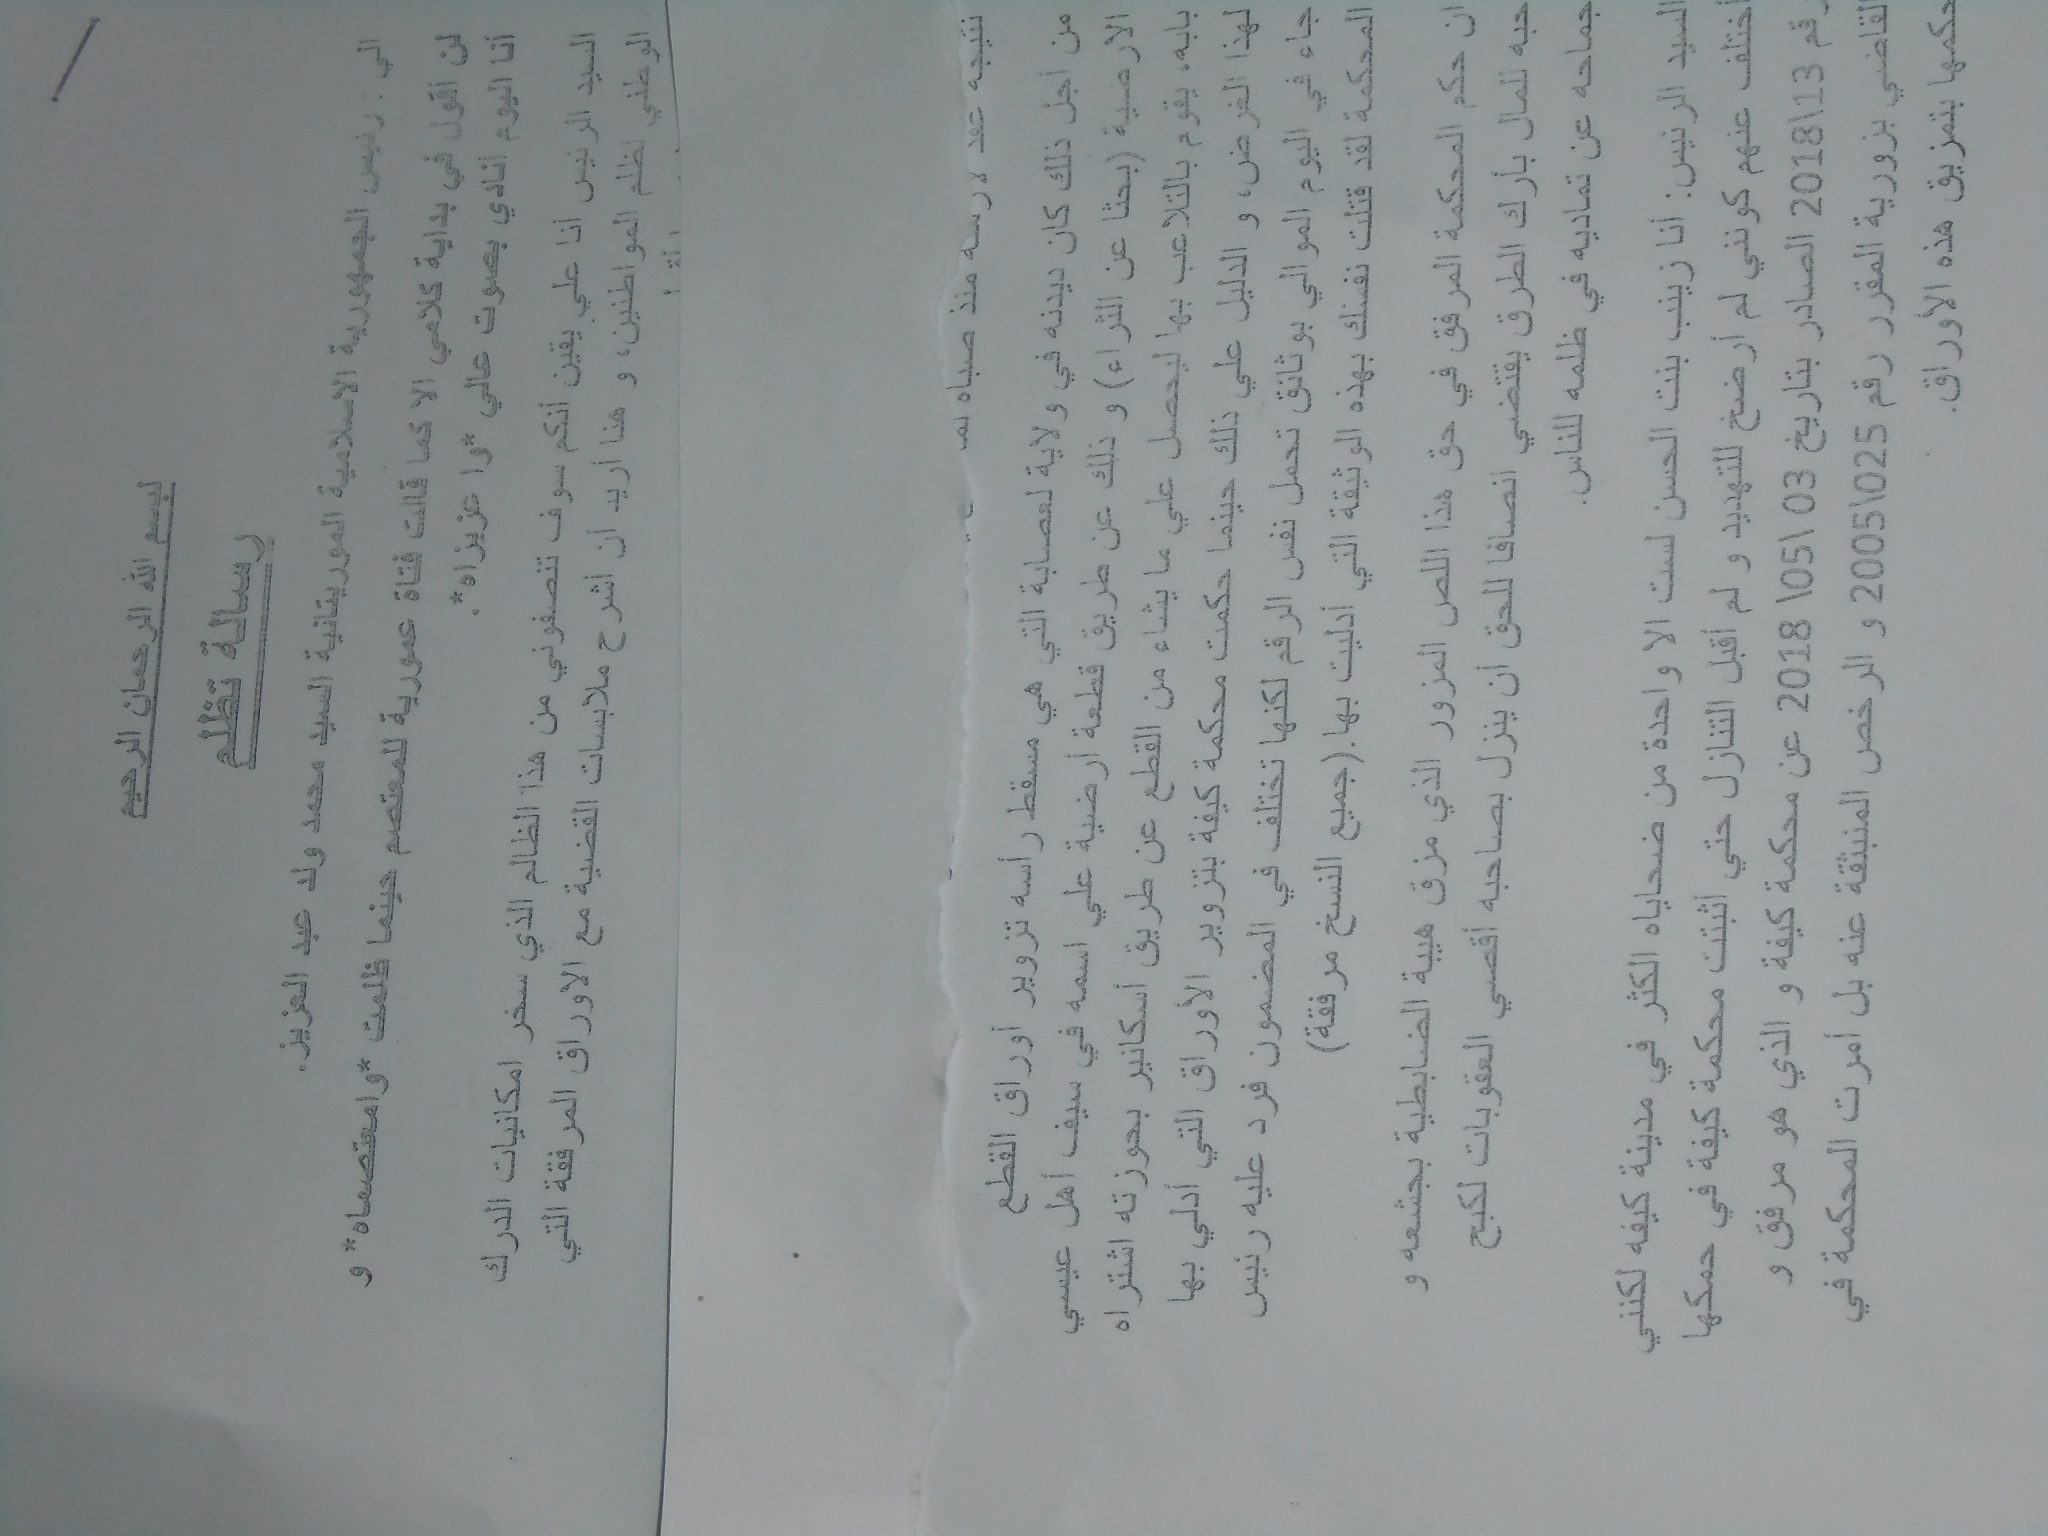 بسم الله الرحمان الرحيم
رسالة تظلم
الي . رئيس الجمهورية الاسلامية الموريتانية السيد محمد ولد عبد العزيز.
لن اقول في بداية كلامي الا كما قالت فتاة عمورية للمعتصم حينما ظلمت *وامعتصماه* و
أنا اليوم أنادي بصوت عالي *وا عزيزاه*.
السيد الرئيس أنا علي يقين أنكم سوف تنصفوني من هذا الظالم الذي سخر امكانيات الدرك
الوطني لظلم المواطنين، و هنا أريد أن أشرح ملابسات القضية مع الاوراق المرفقة التي
نتيجة عقد
منذ صباه
من أجل ذلك كان ديدنه في ولاية لعصابة التي هي مسقط رأسه تزوير أوراق القطع
الارضية (بحثا عن الثراء) و ذلك عن طريق قطعة أرضية علي اسمه في سيف أهل عيسي
بابه، يقوم بالتلاعب بها ليحصل علي ما يشاء من القطع عن طريق أسكانير بحوزته اشتراه
لهذا الغرض، و الدليل علي ذلك حينما حكمت محكمة كيفة بتزوير الأوراق التي أدلي بها
جاء في اليوم الموالي بوثائق تحمل نفس الرقم لكنها تختلف في المضمون فرد عليه رئيس
المحكمة لقد قتلت نفسك بهذه الوثيقة التي أدليت بها.(جميع النسخ مرفقة)
ان حكم المحكمة المرفق في حق هذا اللص المزور الذي مزق هيبة الضابطية بجشعه و
حبه للمال بأرك الطرق يقتضي انصافا للحق أن ينزل بصاحبه أقصي العقوبات لكبح
جماحه عن تماديه في ظلمه للناس.
السيد الرئيس: أنا زينب بنت الحسن لست الا واحدة من ضحاياه الكثر في مدينة كيفه لكنني
أختلف عنهم كونني لم أرضخ للتهديد و لم أقبل التنازل حتي أثبتت محكمة كيفة في حمكها
رقم 13\2018 الصادر بتاريخ 03 \05\ 2018 عن محكمة كيفة و الذي هو مرفق و
القاضي بزورية المقرر رقم 025\2005 و الرخص المنبثقة عنه بل أمرت المحكمة في
حكمها بتمزيق هذه الأوراق.